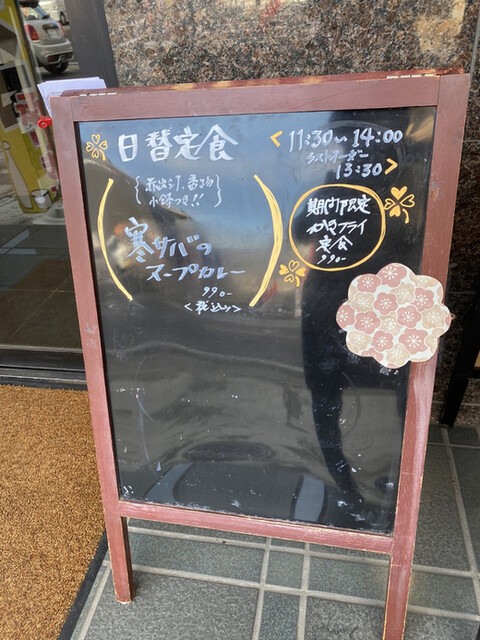 日替定食
<11:30〜14:00
ラストオーダー
13:30>
{赤出汁、香物
小鉢つき!!}
寒サバの
スープカレー
990-
<税込み>
期間限定
かきフライ
定食
990-